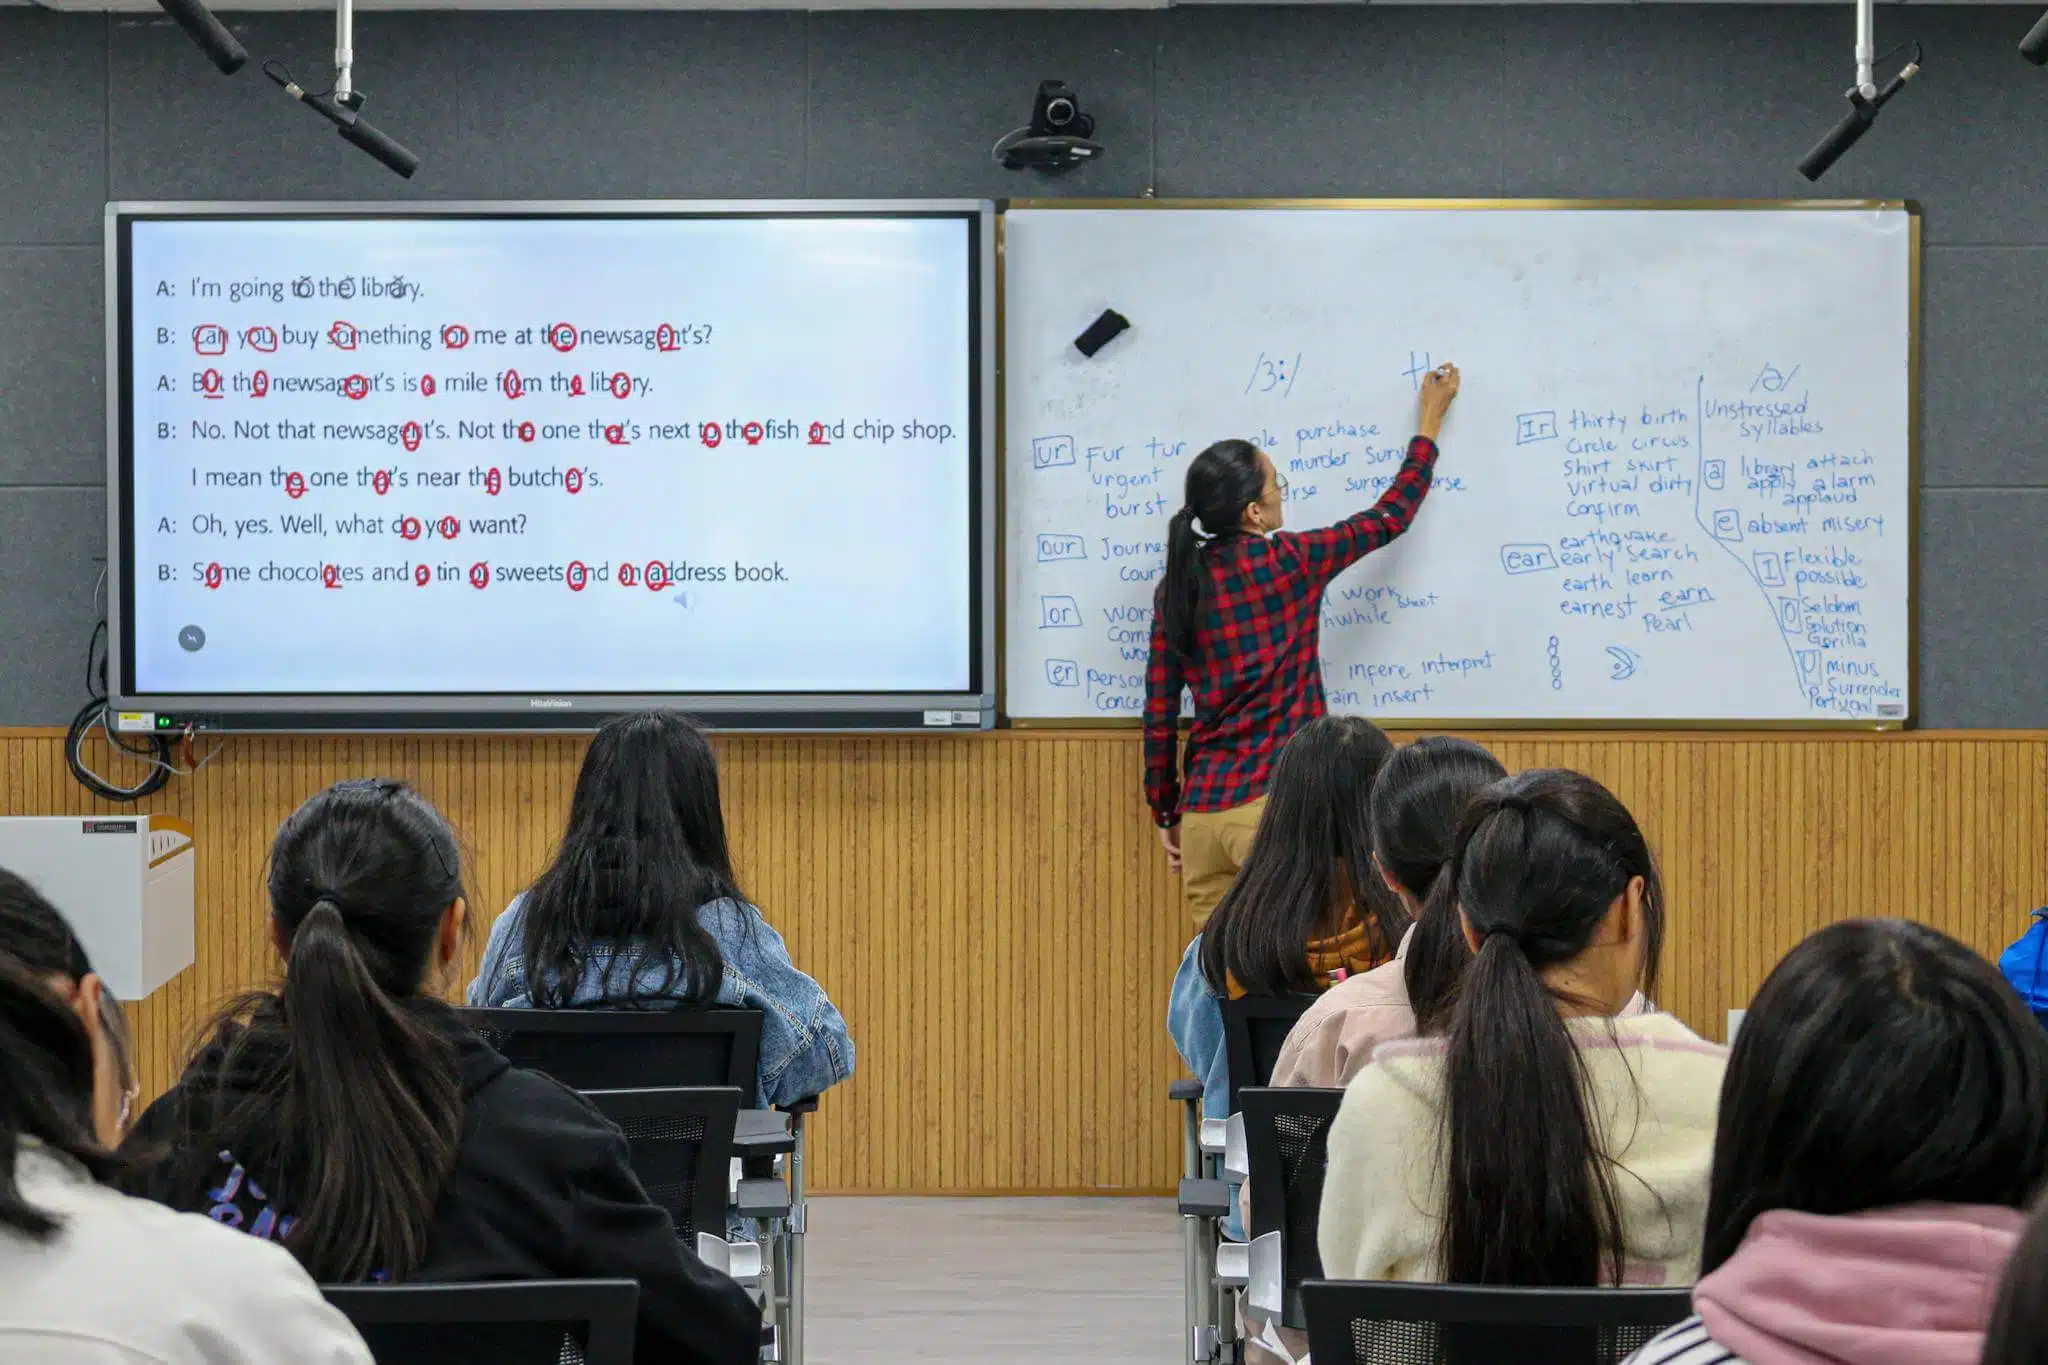 A: I'm going to the library.
B: Can you buy something for me at the newsagent's?
A: But the newsagent's is a mile from the library.
B: No. Not that newsagent's. Not the one that's next to the fish and chip shop.
I mean the one that's near the butcher's.
A: Oh, yes. Well, what do you want?
B: Some chocolates and a tin of sweets and an address book.
HitaVision
/ɜ:/
ur Fur tur purchase
urgent murder
burst surge
our
or work sheet
er infere interpret
insert
Ir thirty birth
Circle circus
Shirt skirt
Virtual dirty
Confirm
earthquake
ear early search
earth learn
earnest earn
Pearl
/ə/
Unstressed
Syllables
a library attach
apply alarm
applaud
e absent misery
I Flexible
possible
O Seldom
Solution
Gorilla
U minus
Surrender
Portugal